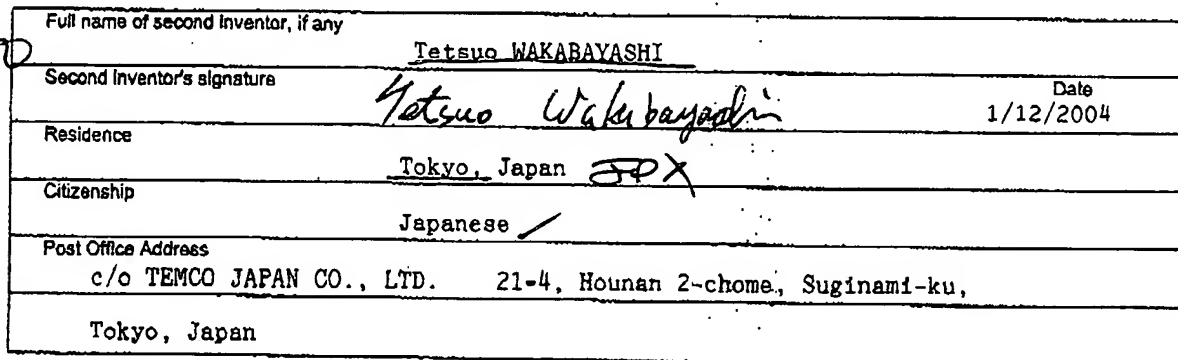 Full name of second Inventor, if any
Tetsuo WAKABAYASHI
Second Inventor's signature
Tetsuo Wakabayashi
Date
1/12/2004
Residence
Tokyo, Japan JPX
Citizenship
Japanese
Post Office Address
c/o TEMCO JAPAN CO., LTD. 21-4, Hounan 2-chome, Suginami-ku,
Tokyo, Japan